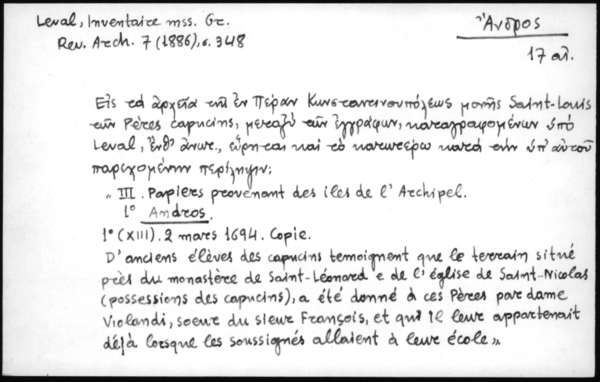 Leval, Inventaire mss. Gr.
Rev. Arch. 7 (1886), σ. 348
Ἄνδρος
17 αἰ.
Εἰς τὰ ἀρχεῖα τῆς ἐν Πέραν Κωνσταντινουπόλεως μονῆς Saint-Louis
τῶν Pères capucins, μεταξὺ τῶν ἐγγράφων, καταγραφομένων ὑπὸ
Leval, ἔνθ' ἀνωτ., εὕρηται καὶ τὸ κατωτέρω κατὰ τὴν ὑπ' αὐτοῦ
παρεχομένην περίληψιν:
„ III. Papiers provenant des iles de l'Archipel.
1° Andros.
1° (XIII). 2 mars 1694. Copie.
D'anciens élèves des capucins temoignent que le terrain situé
près du monastère de Saint-Léonard e de l'église de Saint-Nicolas
(possessions des capucins), a été donné à ces Pères par dame
Violandi, soeur du sieur François, et qu'il leur appartenait
déjà lorsque les soussignés allaient à leur école»